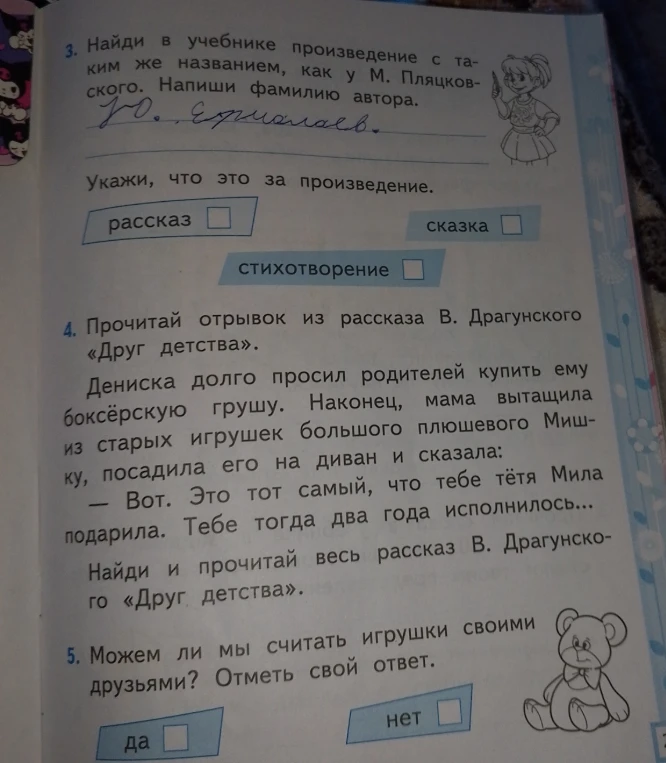 3. Найди в учебнике произведение с та-
ким же названием, как у М. Пляцков-
ского. Напиши фамилию автора.
Ю. Ермолаев.
Укажи, что это за произведение.
рассказ
сказка
стихотворение
4. Прочитай отрывок из рассказа В. Драгунского
«Друг детства».
Дениска долго просил родителей купить ему
боксёрскую грушу. Наконец, мама вытащила
из старых игрушек большого плюшевого Миш-
ку, посадила его на диван и сказала:
— Вот. Это тот самый, что тебе тётя Мила
подарила. Тебе тогда два года исполнилось...
Найди и прочитай весь рассказ В. Драгунско-
го «Друг детства».
5. Можем ли мы считать игрушки своими
друзьями? Отметь свой ответ.
да
нет